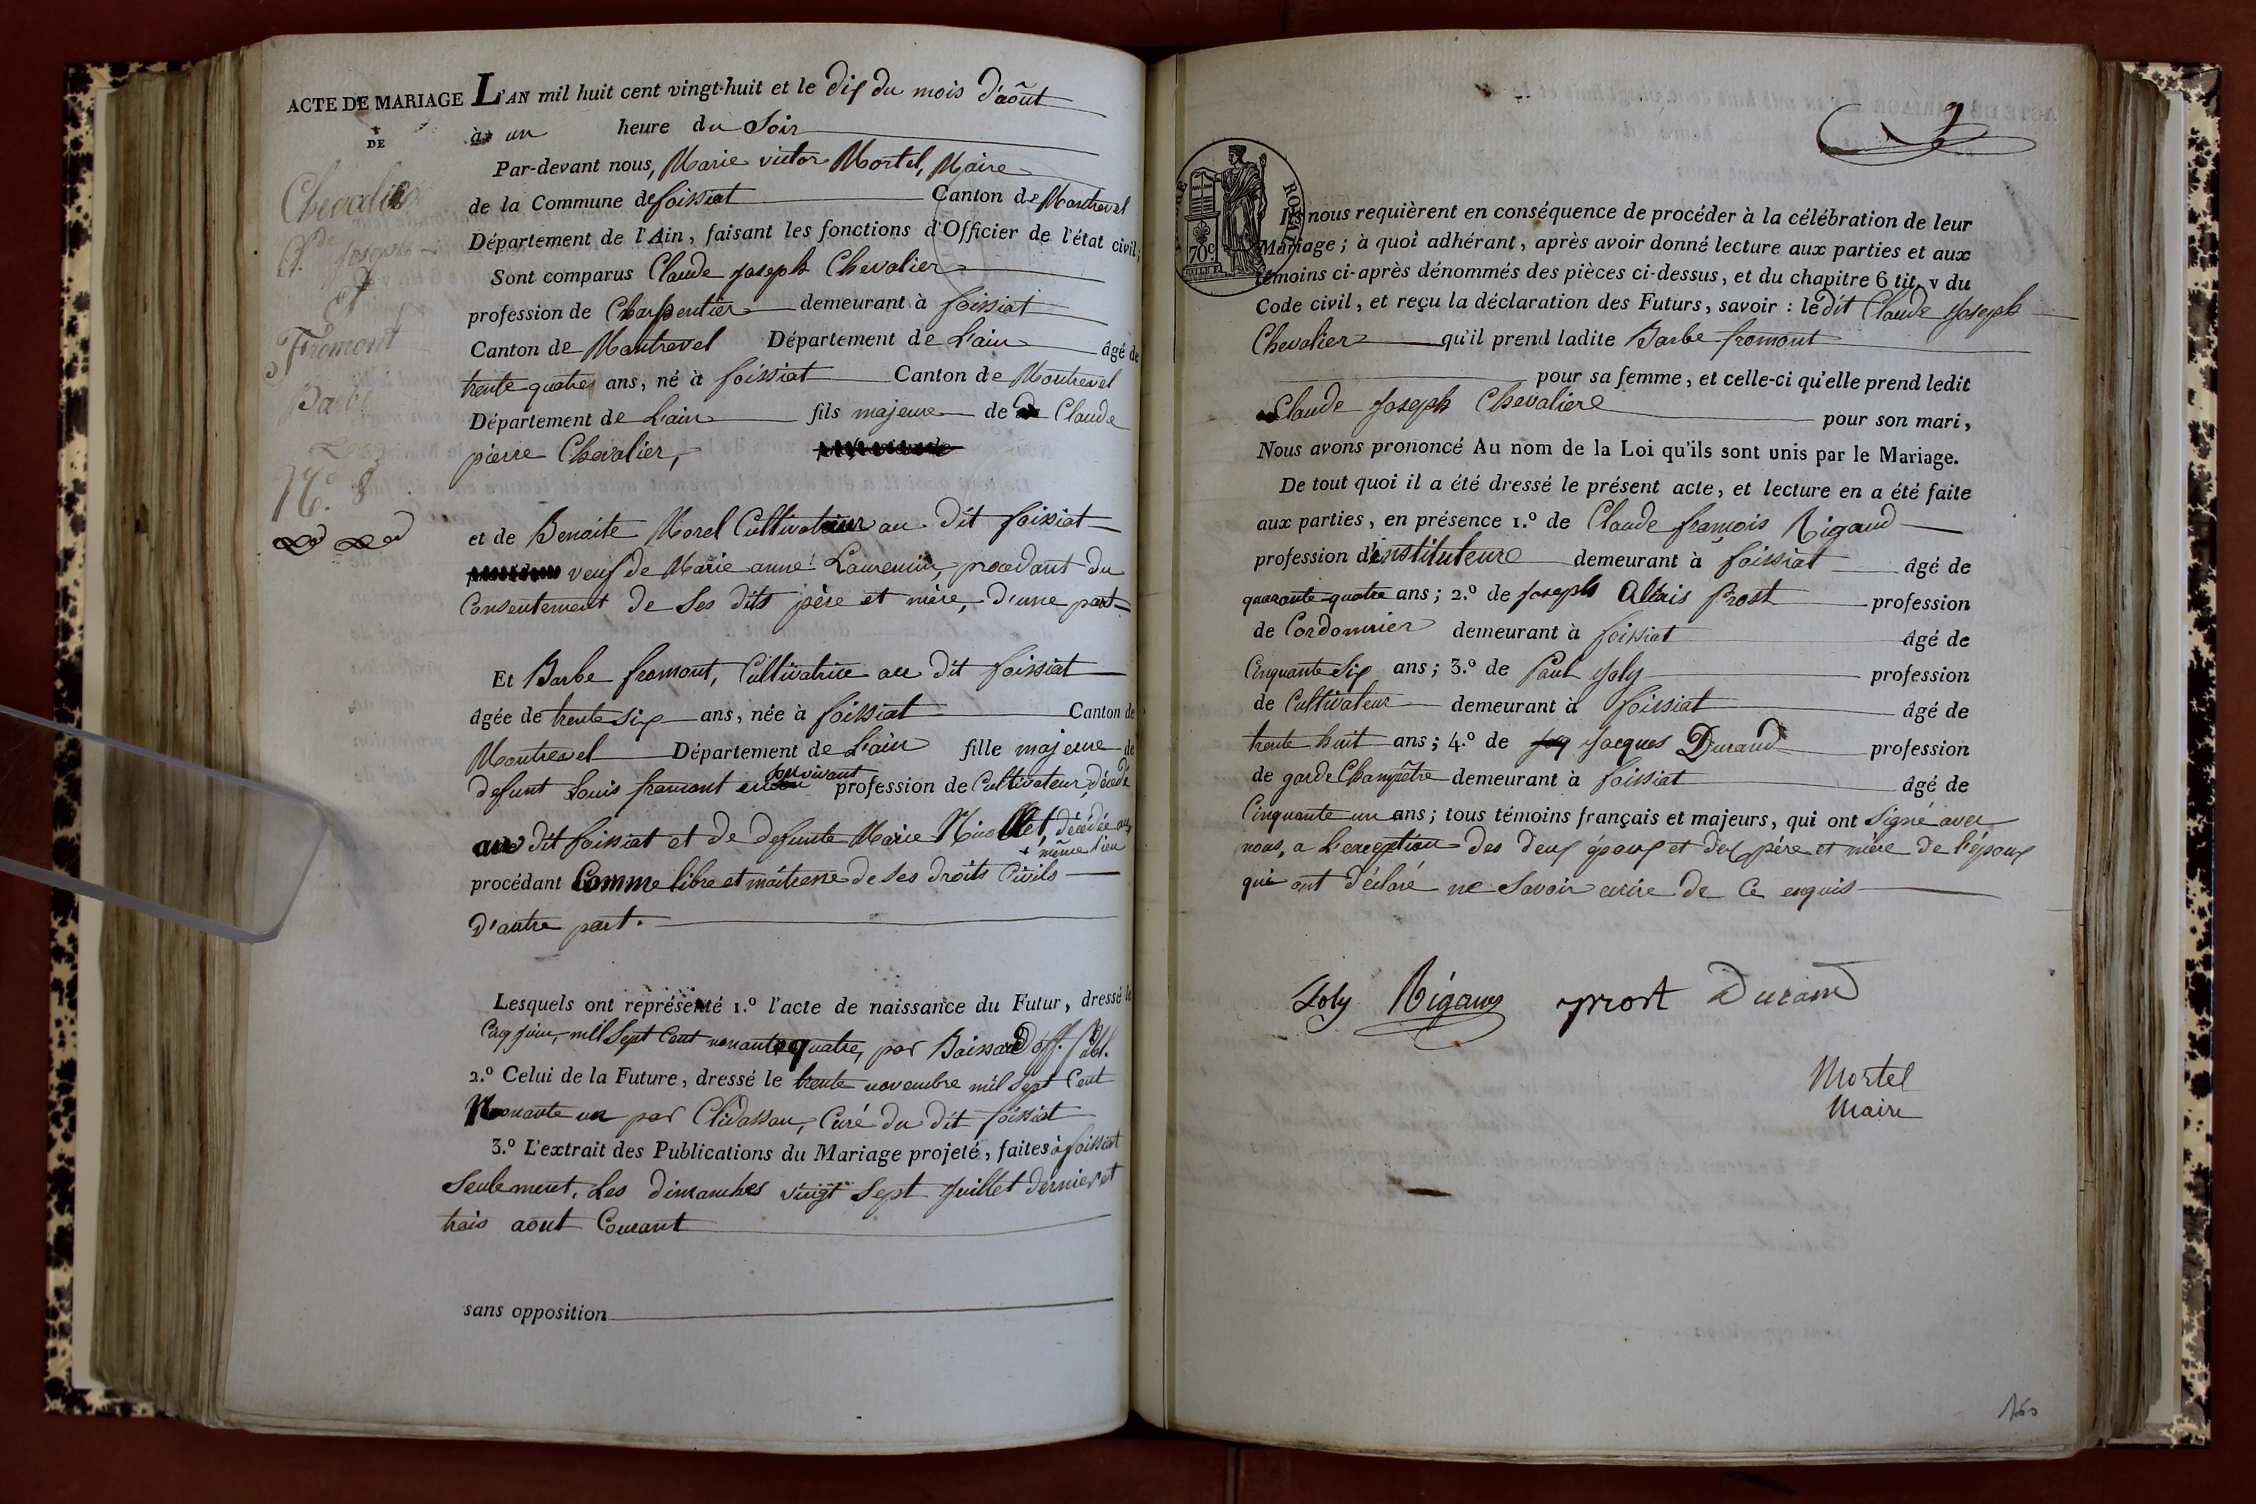 ACTE DE MARIAGE
DE
Chevalier
Cde Joseph
et
Fromont
Barbe
N.º 8
L'AN mil huit cent vingt-huit et le dix du mois d'août
à un heure du Soir
Par-devant nous, Marie victor Mortel, Maire
de la Commune de foissiat Canton de Montrevel
Département de l'Ain, faisant les fonctions d'Officier de l'état civil;
Sont comparus Claude Joseph Chevalier
profession de Charpentier demeurant à foissiat
Canton de Montrevel Département de L'ain âgé de
trente quatres ans, né à foissiat Canton de Montrevel
Département de L'ain fils majeure de Claude
pierre Chevalier,
et de Benoite Morel Cultivateur au dit foissiat
veuf de Marie anne Laurencin, procedant du
Consentement de Ses dits père et mère, d'une part
Et Barbe fromont, Cultivatrice au dit foissiat
âgée de trente six ans, née à foissiat Canton de
Montrevel Département de L'ain fille majeure de
defunt Louis fromont en son vivant profession de Cultivateur, décédé
au dit foissiat et de defunte Marie Nicollet, décédée au
+ même lieu
procédant Comme libre et maitresse de ses droits Civils
d'autre part.
Lesquels ont représenté 1.º l'acte de naissance du Futur, dressé le
Cinq juin, mil Sept Cent nonante quatre, par Boissard off. publ.
2.º Celui de la Future, dressé le trente novembre mil Sept Cent
Nonante un par Chidassau, Curé du dit foissiat
3.º L'extrait des Publications du Mariage projeté, faites à foissiat
Seulement, Les dimanches vingt Sept Juillet dernier et
trois aout Courant
sans opposition
70c
ROYAL
Ils nous requièrent en conséquence de procéder à la célébration de leur
Mariage; à quoi adhérant, après avoir donné lecture aux parties et aux
témoins ci-après dénommés des pièces ci-dessus, et du chapitre 6 tit. v du
Code civil, et reçu la déclaration des Futurs, savoir: ledit Claude Joseph
Chevalier qu'il prend ladite Barbe fromont
pour sa femme, et celle-ci qu'elle prend ledit
Claude Joseph Chevaliere
pour son mari,
Nous avons prononcé Au nom de la Loi qu'ils sont unis par le Mariage.
De tout quoi il a été dressé le présent acte, et lecture en a été faite
aux parties, en présence 1.º de Claude françois Rigaud
profession d'instituteure demeurant à foissiat âgé de
quarante-quatre ans; 2.º de Joseph Alexis Prost profession
de Cordonnier demeurant à foissiat âgé de
Cinquante Six ans; 3.º de Paul Joly profession
de Cultivateur demeurant à foissiat âgé de
trente huit ans; 4.º de Jacques Durand profession
de garde Champêtre demeurant à foissiat âgé de
Cinquante un ans; tous témoins français et majeurs, qui ont Signé avec
nous, a L'exception des deux époux et des père et mère de l'époux
qui ont déclaré ne Savoir ecrire de Ce enquis
Joly Rigaud prost Durand
Mortel
Maire
160